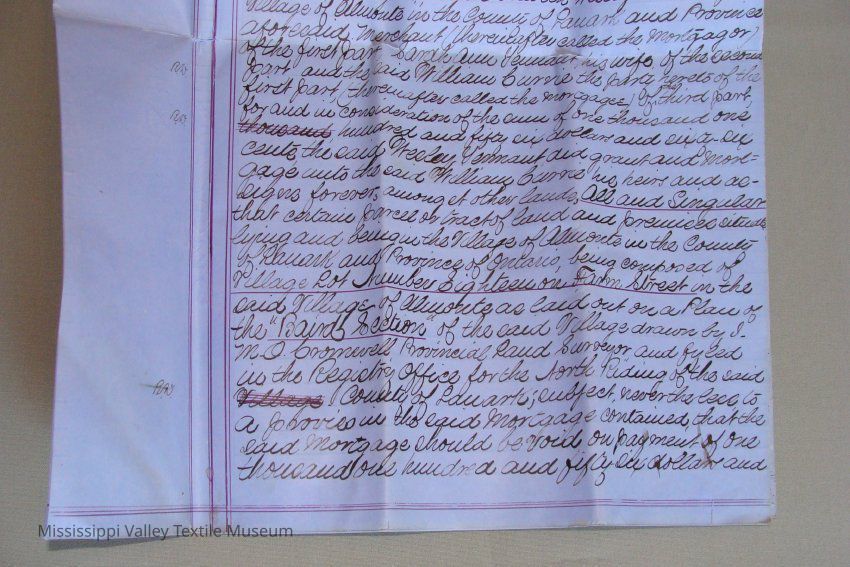 Village of Almonte in the County of Lanark and Province
aforesaid Merchant (hereinafter called the Mortgagor)
of the first part, Sarah Ann Tennant, his wife of the second
part, and the said William Currie the party hereto of the
first part, (hereinafter called the Mortgagee) of third part,
for and in consideration of the sum of one thousand one
thousand hundred and fifty six dollars and sixty-six
cents, the said Wesley Tennant did grant and Mort-
gage unto the said William Currie his heirs and as-
signs forever, amongst other lands, All and Singular
that certain parcel or tract of land and premises situate
lying and being in the Village of Almonte in the County
of Lanark and Province of Ontario, being composed of
Village Lot Number Eighteen on Farm Street in the
said Village of Almonte as laid out on a Plan of
the "Baird Section" of the said Village drawn by J.
M. O. Cromwell Provincial Land Surveyor and fyled
in the Registry Office for the North Riding of the said
Village County of Lanark; subject, nevertheless to
a proviso in the said Mortgage contained, that the
said Mortgage should be void on payment of one
thousand one hundred and fifty six dollars and
Mississippi Valley Textile Museum